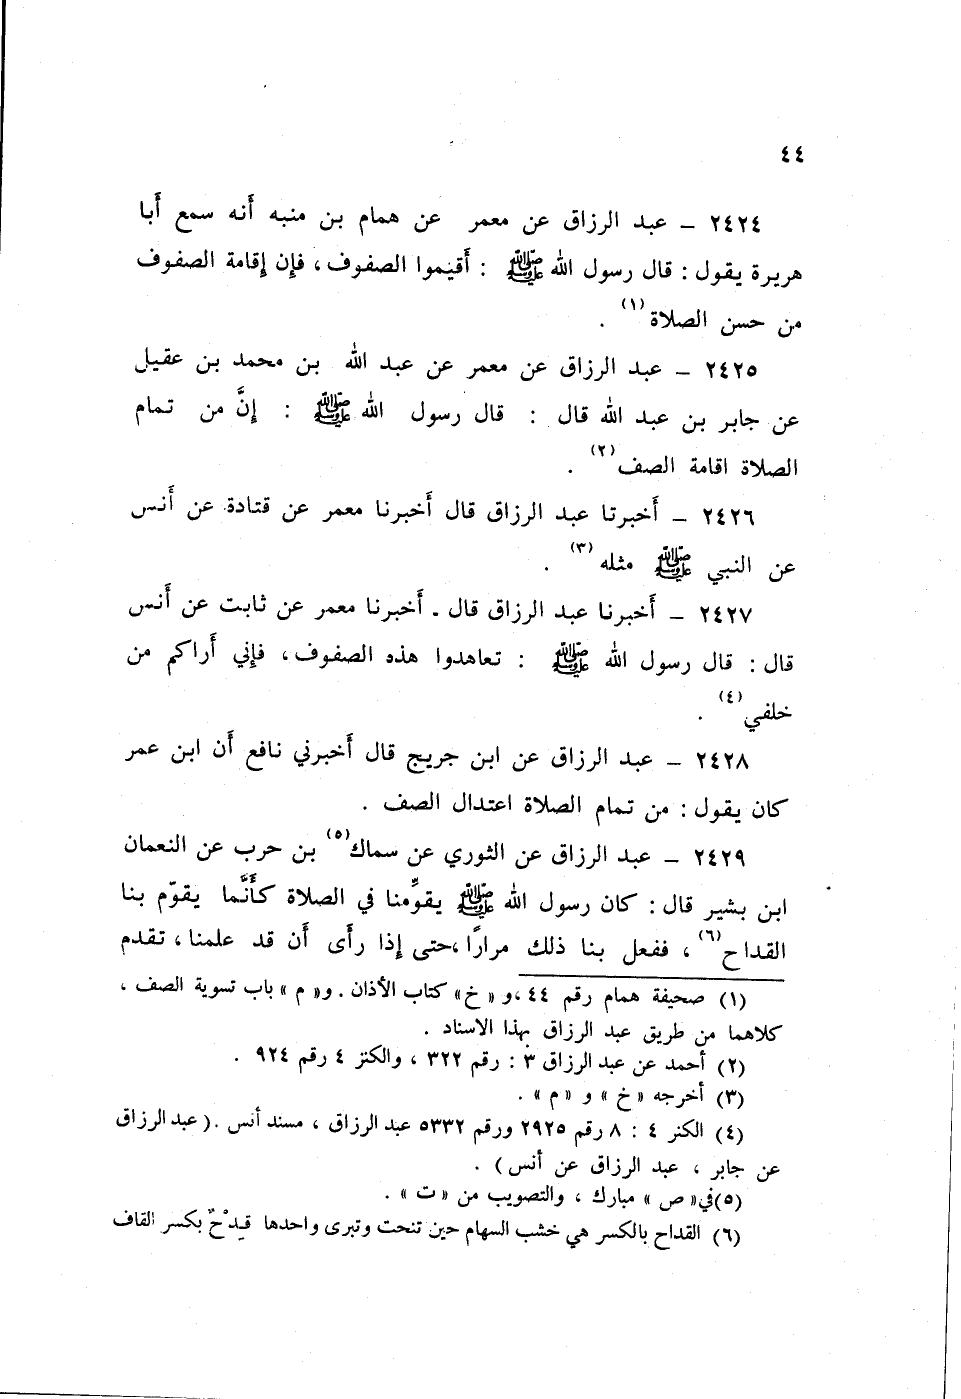 ٤٤
٢٤٢٤ – عبد الرزاق عن معمر عن همام بن منبه أنه سمع أبا
هريرة يقول : قال رسول الله ﷺ : أقيموا الصفوف ، فإن إقامة الصفوف
من حسن الصلاة (١) .
٢٤٢٥ – عبد الرزاق عن معمر عن عبد الله بن محمد بن عقيل
عن جابر بن عبد الله قال : قال رسول الله ﷺ : إنَّ من تمام
الصلاة اقامة الصف (٢) .
٢٤٢٦ – أخبرتا عبد الرزاق قال أخبرنا معمر عن قتادة عن أنس
عن النبي ﷺ مثله (٣) .
٢٤٢٧ – أخبرنا عبد الرزاق قال . أخبرنا معمر عن ثابت عن أنس
قال : قال رسول الله ﷺ : تعاهدوا هذه الصفوف ، فإني أراكم من
خلفي (٤) .
٢٤٢٨ – عبد الرزاق عن ابن جريج قال أخبرني نافع أن ابن عمر
كان يقول : من تمام الصلاة اعتدال الصف .
٢٤٢٩ – عبد الرزاق عن الثوري عن سماك (٥) بن حرب عن النعمان
ابن بشير قال : كان رسول الله ﷺ يقوِّمنا في الصلاة كأنَّما يقوّم بنا
القداح (٦) ، ففعل بنا ذلك مرارًا ، حتى إذا رأى أن قد علمنا ، تقدم
(١) صحيفة همام رقم ٤٤ ، و « خ » كتاب الأذان . و« م » باب تسوية الصف ،
كلاهما من طريق عبد الرزاق بهذا الاسناد .
(٢) أحمد عن عبد الرزاق ٣ : رقم ٣٢٢ ، والكنز ٤ رقم ٩٢٤ .
(٣) أخرجه « خ » و « م » .
(٤) الكنر ٤ : ٨ رقم ٢٩٢٥ ورقم ٥٣٣٢ عبد الرزاق ، مسند أنس . ( عبد الرزاق
عن جابر ، عبد الرزاق عن أنس ) .
(٥) في « ص » مبارك ، والتصويب من « ت » .
(٦) القداح بالكسر هي خشب السهام حين تنحت وتبرى واحدها قِدْحٌ بكسر القاف